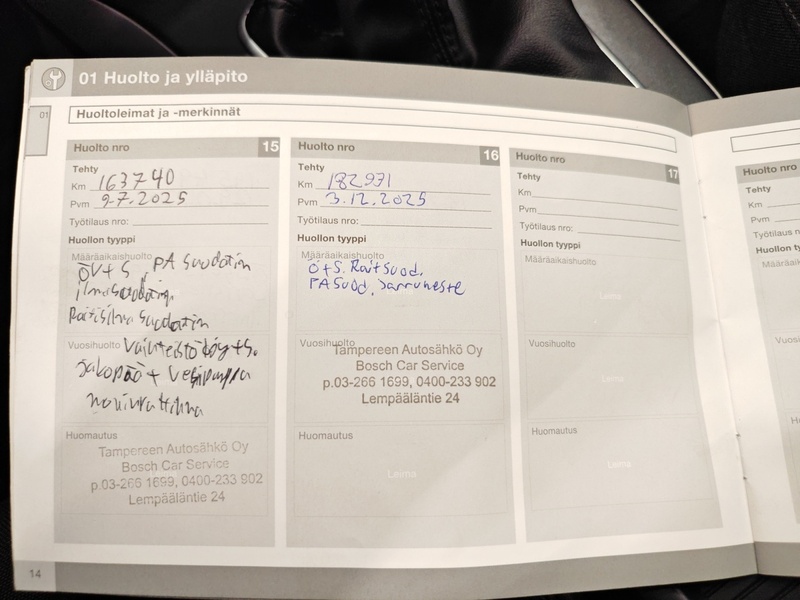 01 Huolto ja ylläpito
01
Huoltoleimat ja -merkinnät
Huolto nro 15
Tehty
Km 163740
Pvm 9.7.2025
Työtilaus nro:
Huollon tyyppi
Määräaikaishuolto
ÖV+S, PA suodatin
ilmasuodatin
Raitisilma suodatin
Vuosihuolto Vaihteistoöljy+S.
Jakopää + Vesipumppu
moniurahihna
Huomautus
Tampereen Autosähkö Oy
Bosch Car Service
p.03-266 1699, 0400-233 902
Lempääläntie 24
Huolto nro 16
Tehty
Km 182931
Pvm 3.12.2025
Työtilaus nro:
Huollon tyyppi
Määräaikaishuolto
Ö+S. Raitsuod.
PA suod. Jarruneste
Vuosihuolto
Tampereen Autosähkö Oy
Bosch Car Service
p.03-266 1699, 0400-233 902
Lempääläntie 24
Huomautus
Leima
Huolto nro 17
Tehty
Km
Pvm
Työtilaus nro:
Huollon tyyppi
Määräaikaishuolto
Leima
Vuosihuolto
Leima
Huomautus
Leima
14
Huolto nro
Tehty
Km
Pvm